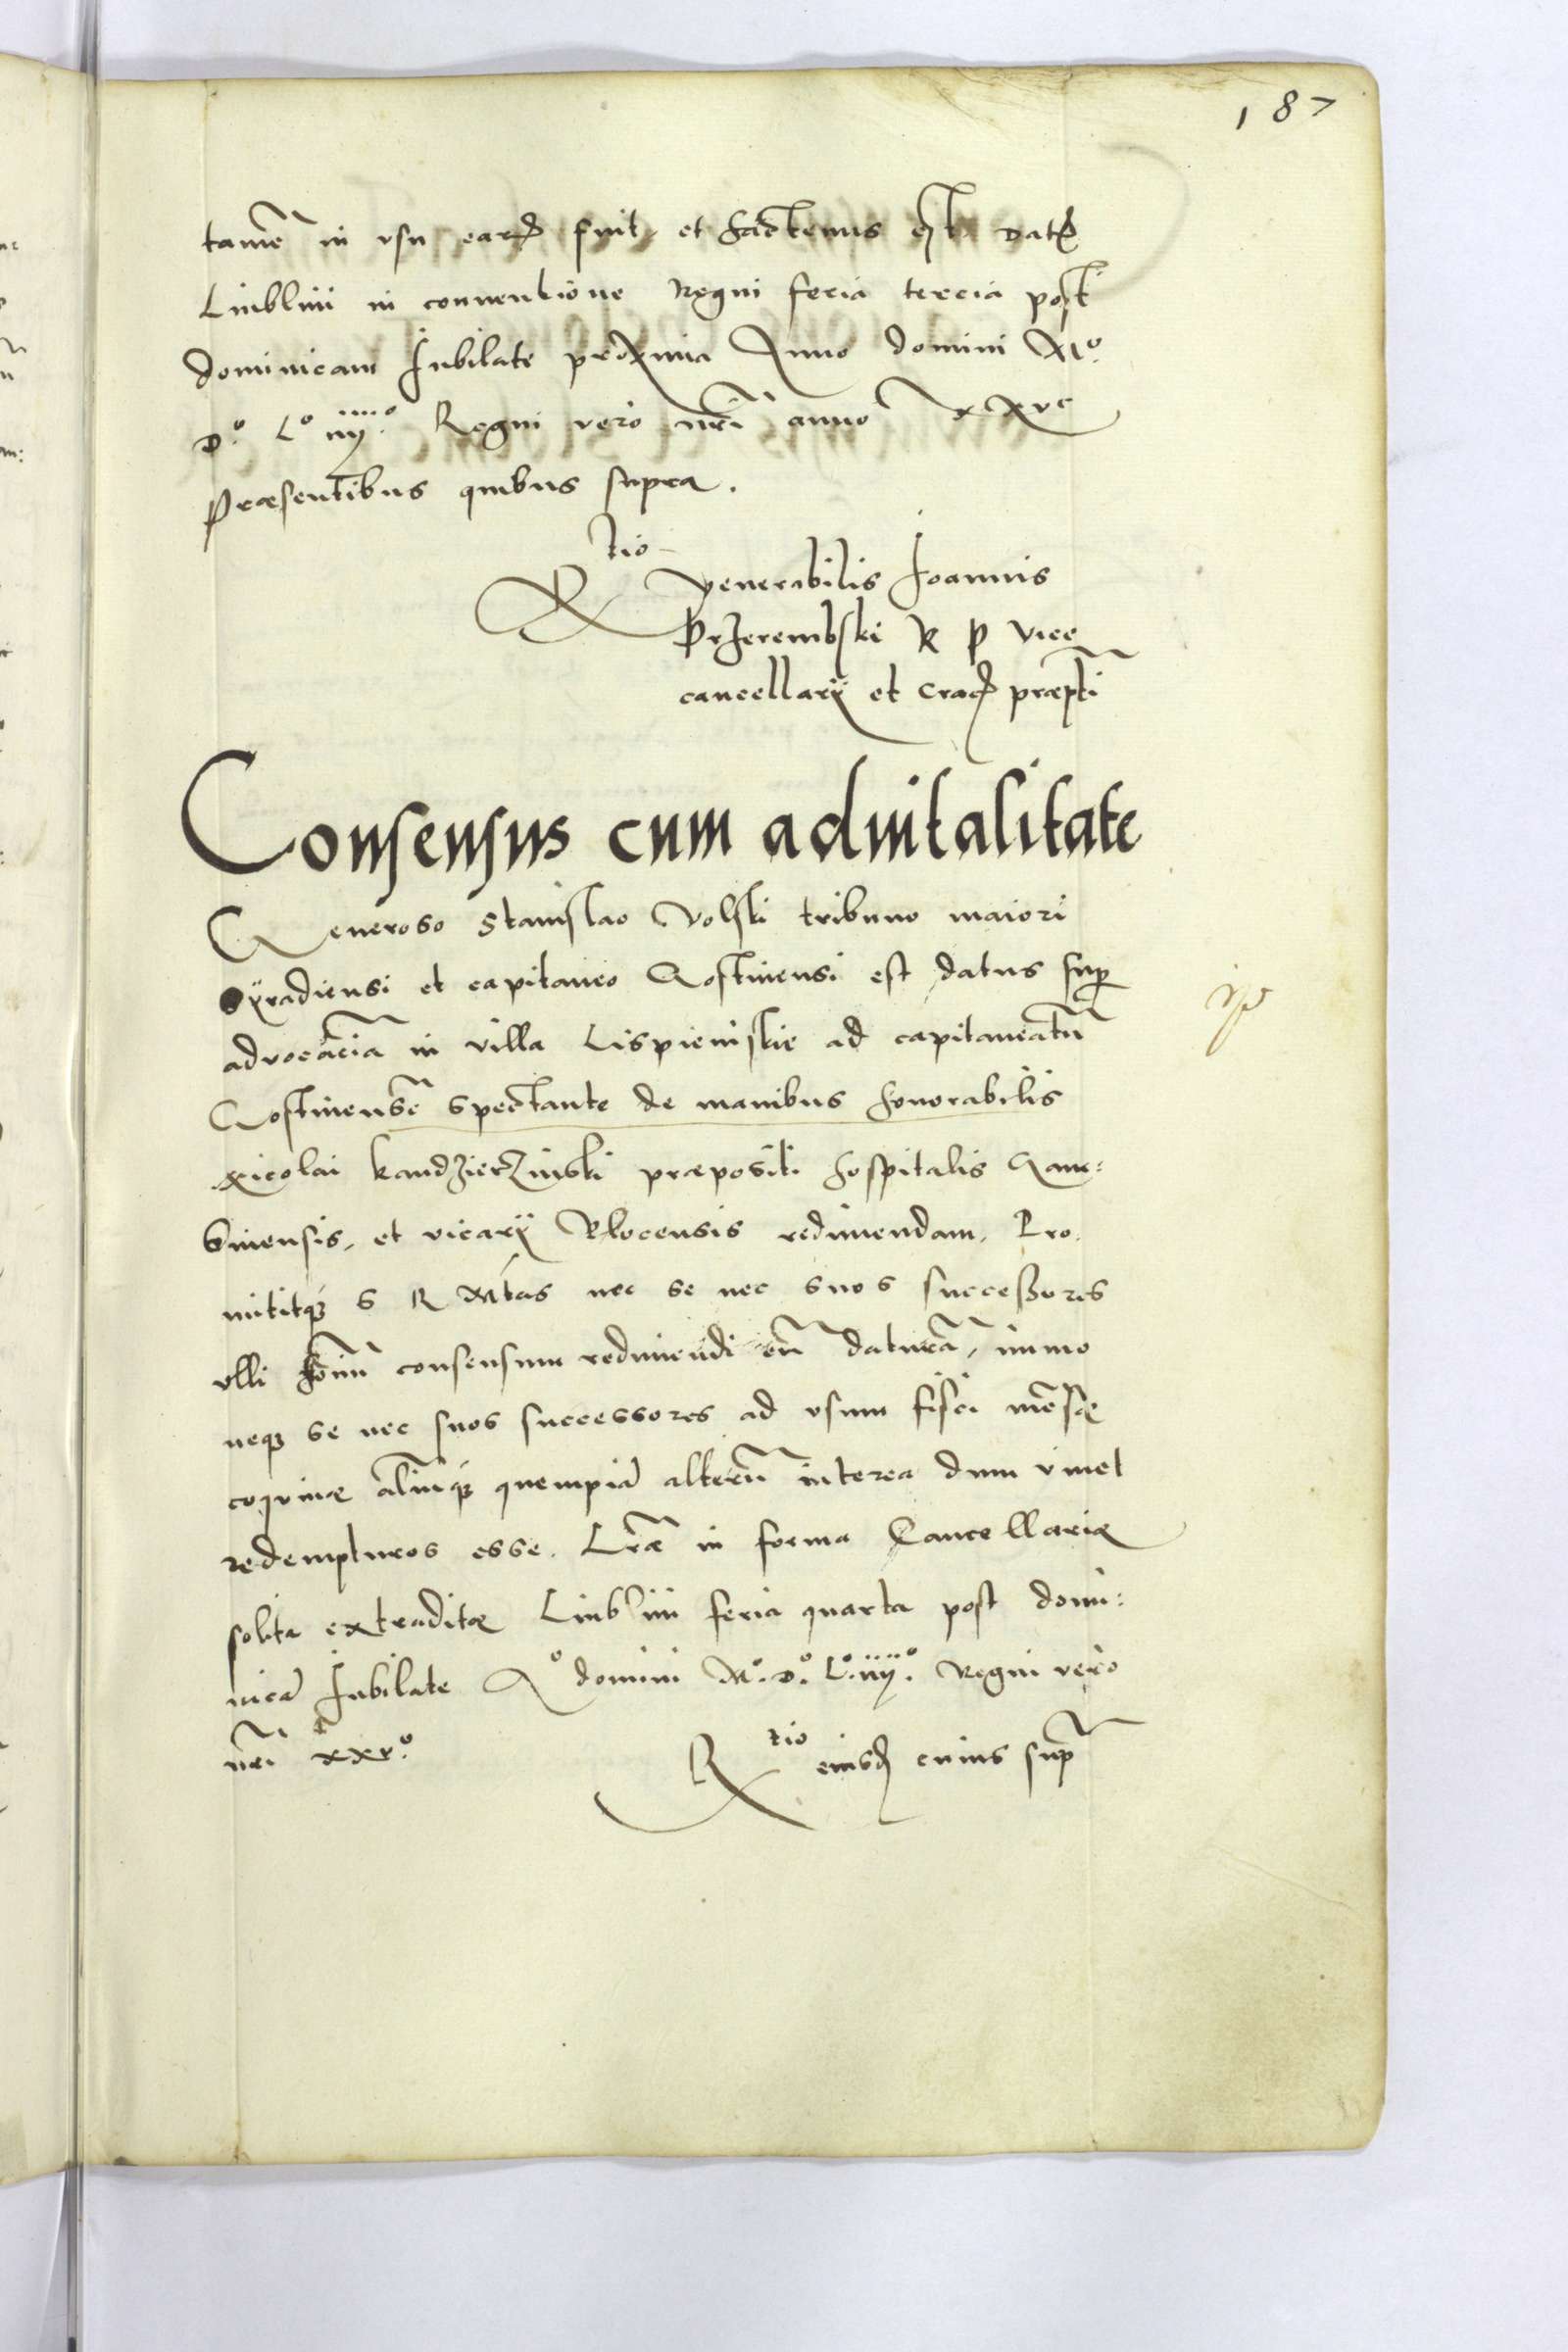 187
tamē in vsu earꝝ fuit, et hactenus est Datꝭ
Lublini in conuentione Regni feria tercia post
dominicam Iubilate proxima Anno domini Mº
Dº Lº iiijº Regni vero nrī anno XXVº
Præsentibus quibus supra.
Rtio Venerabilis Ioannis
Przerembski R P Vice
cancellarij et Cracꝭ præpti
Consensus cum aduitalitate
Generoso Stanislao Volski tribuno maiori
Syradiensi et capitaneo Gostinensi est datus suꝑ
advocaciā in villa Lispieniskie ad capitaneatū
Gostinensē spectante de manibus honorabilis
Nicolai Kandzierzinski præpositi hospitalis Gam:
binensis, et vicarij Plocensis redimendam. Pro
mititqꝫ S R Mtas nec se nec suos successores
vlli hoīm consensum redimendi eū daturā, immo
neqꝫ se nec suos successores ad vsum fisci mēsæ
coquinæ aliūqꝫ quempiā alterū interea dum viuet
redempturos esse. Lræ in forma Cancellariæ
solita extraditæ Lublini feria quarta post domi:
nicā Iubilate Aº domini Mº. Dº. Lº. iiijº. Regni vero
nrī xxvº.
Rtio eiusdꝭ cuius supͣ